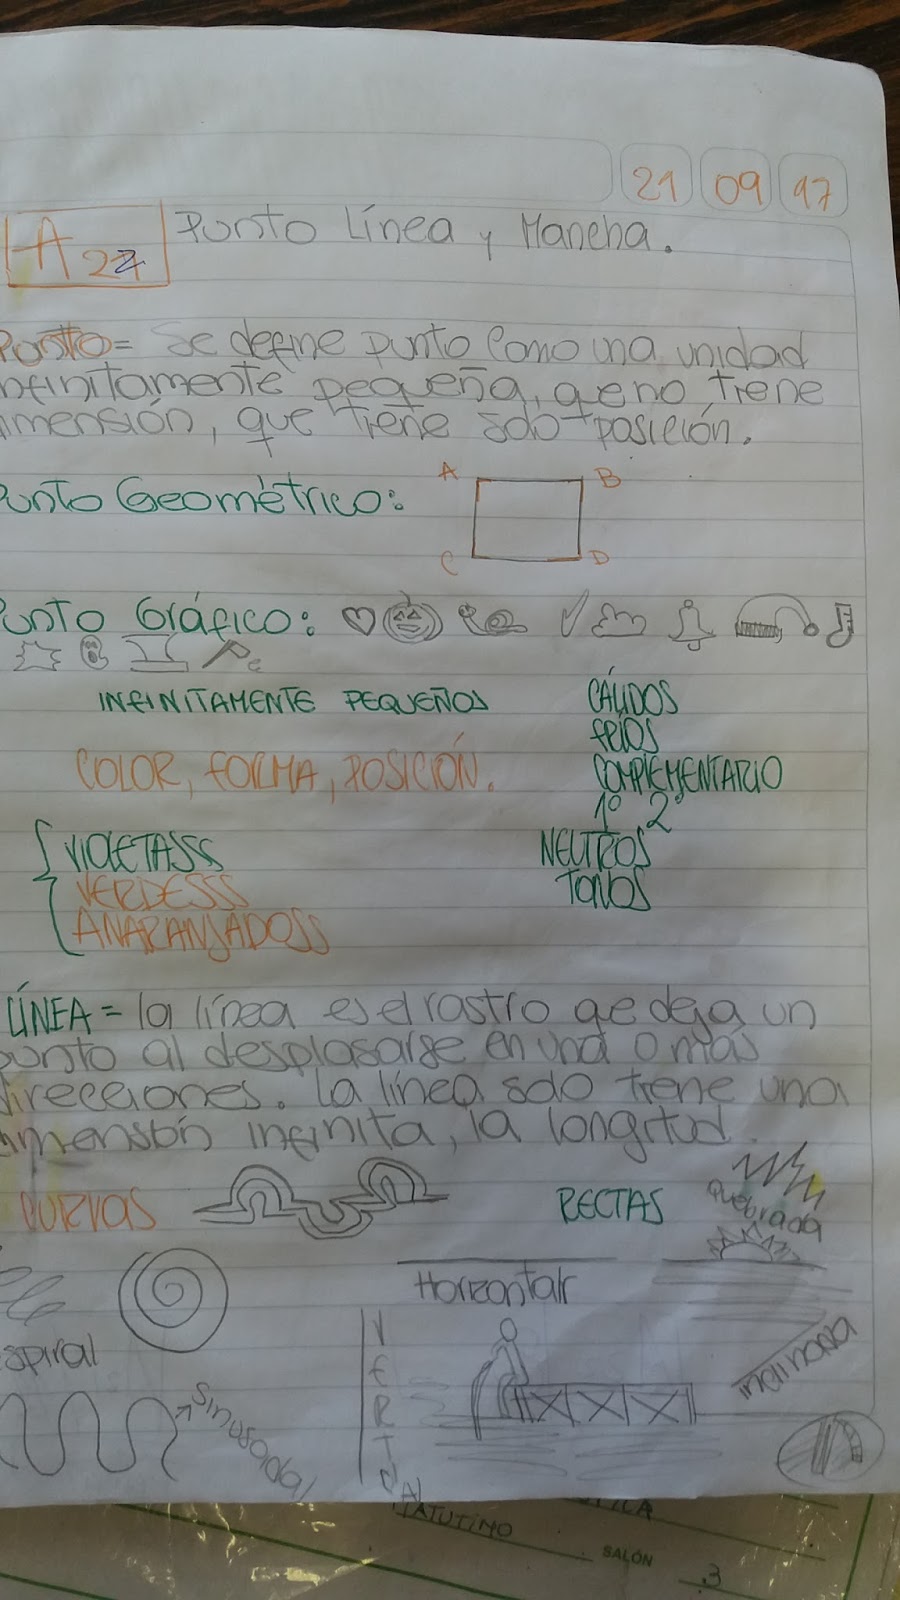 21 09 17
A 22
Punto Línea y Mancha.
Punto= Se define punto como una unidad
nfinitamente pequeña, qe no tiene
imensión, que tiene solo posición.
unto Geométrico:
A B
C D
unto Gráfico:
INFINITAMENTE PEQUEÑOS
CÁLIDOS
FRÍOS
COLOR, FORMA, POSICIÓN.
COMPLEMENTARIO
1° 2°
VIOLETASSS
NEUTROS
VERDESSS
TONOS
ANARANJADOSS
LÍNEA = la línea es el rastro qe deja un
punto al desplasarse en una o más
direcciones. La línea solo tiene una
imensión infinita, la longitud.
CURVAS
RECTAS
quebrada
Horizontalr
spiral
Sinusoidal
VERTICAL
inclinada
ATUTINO
SALÓN 3